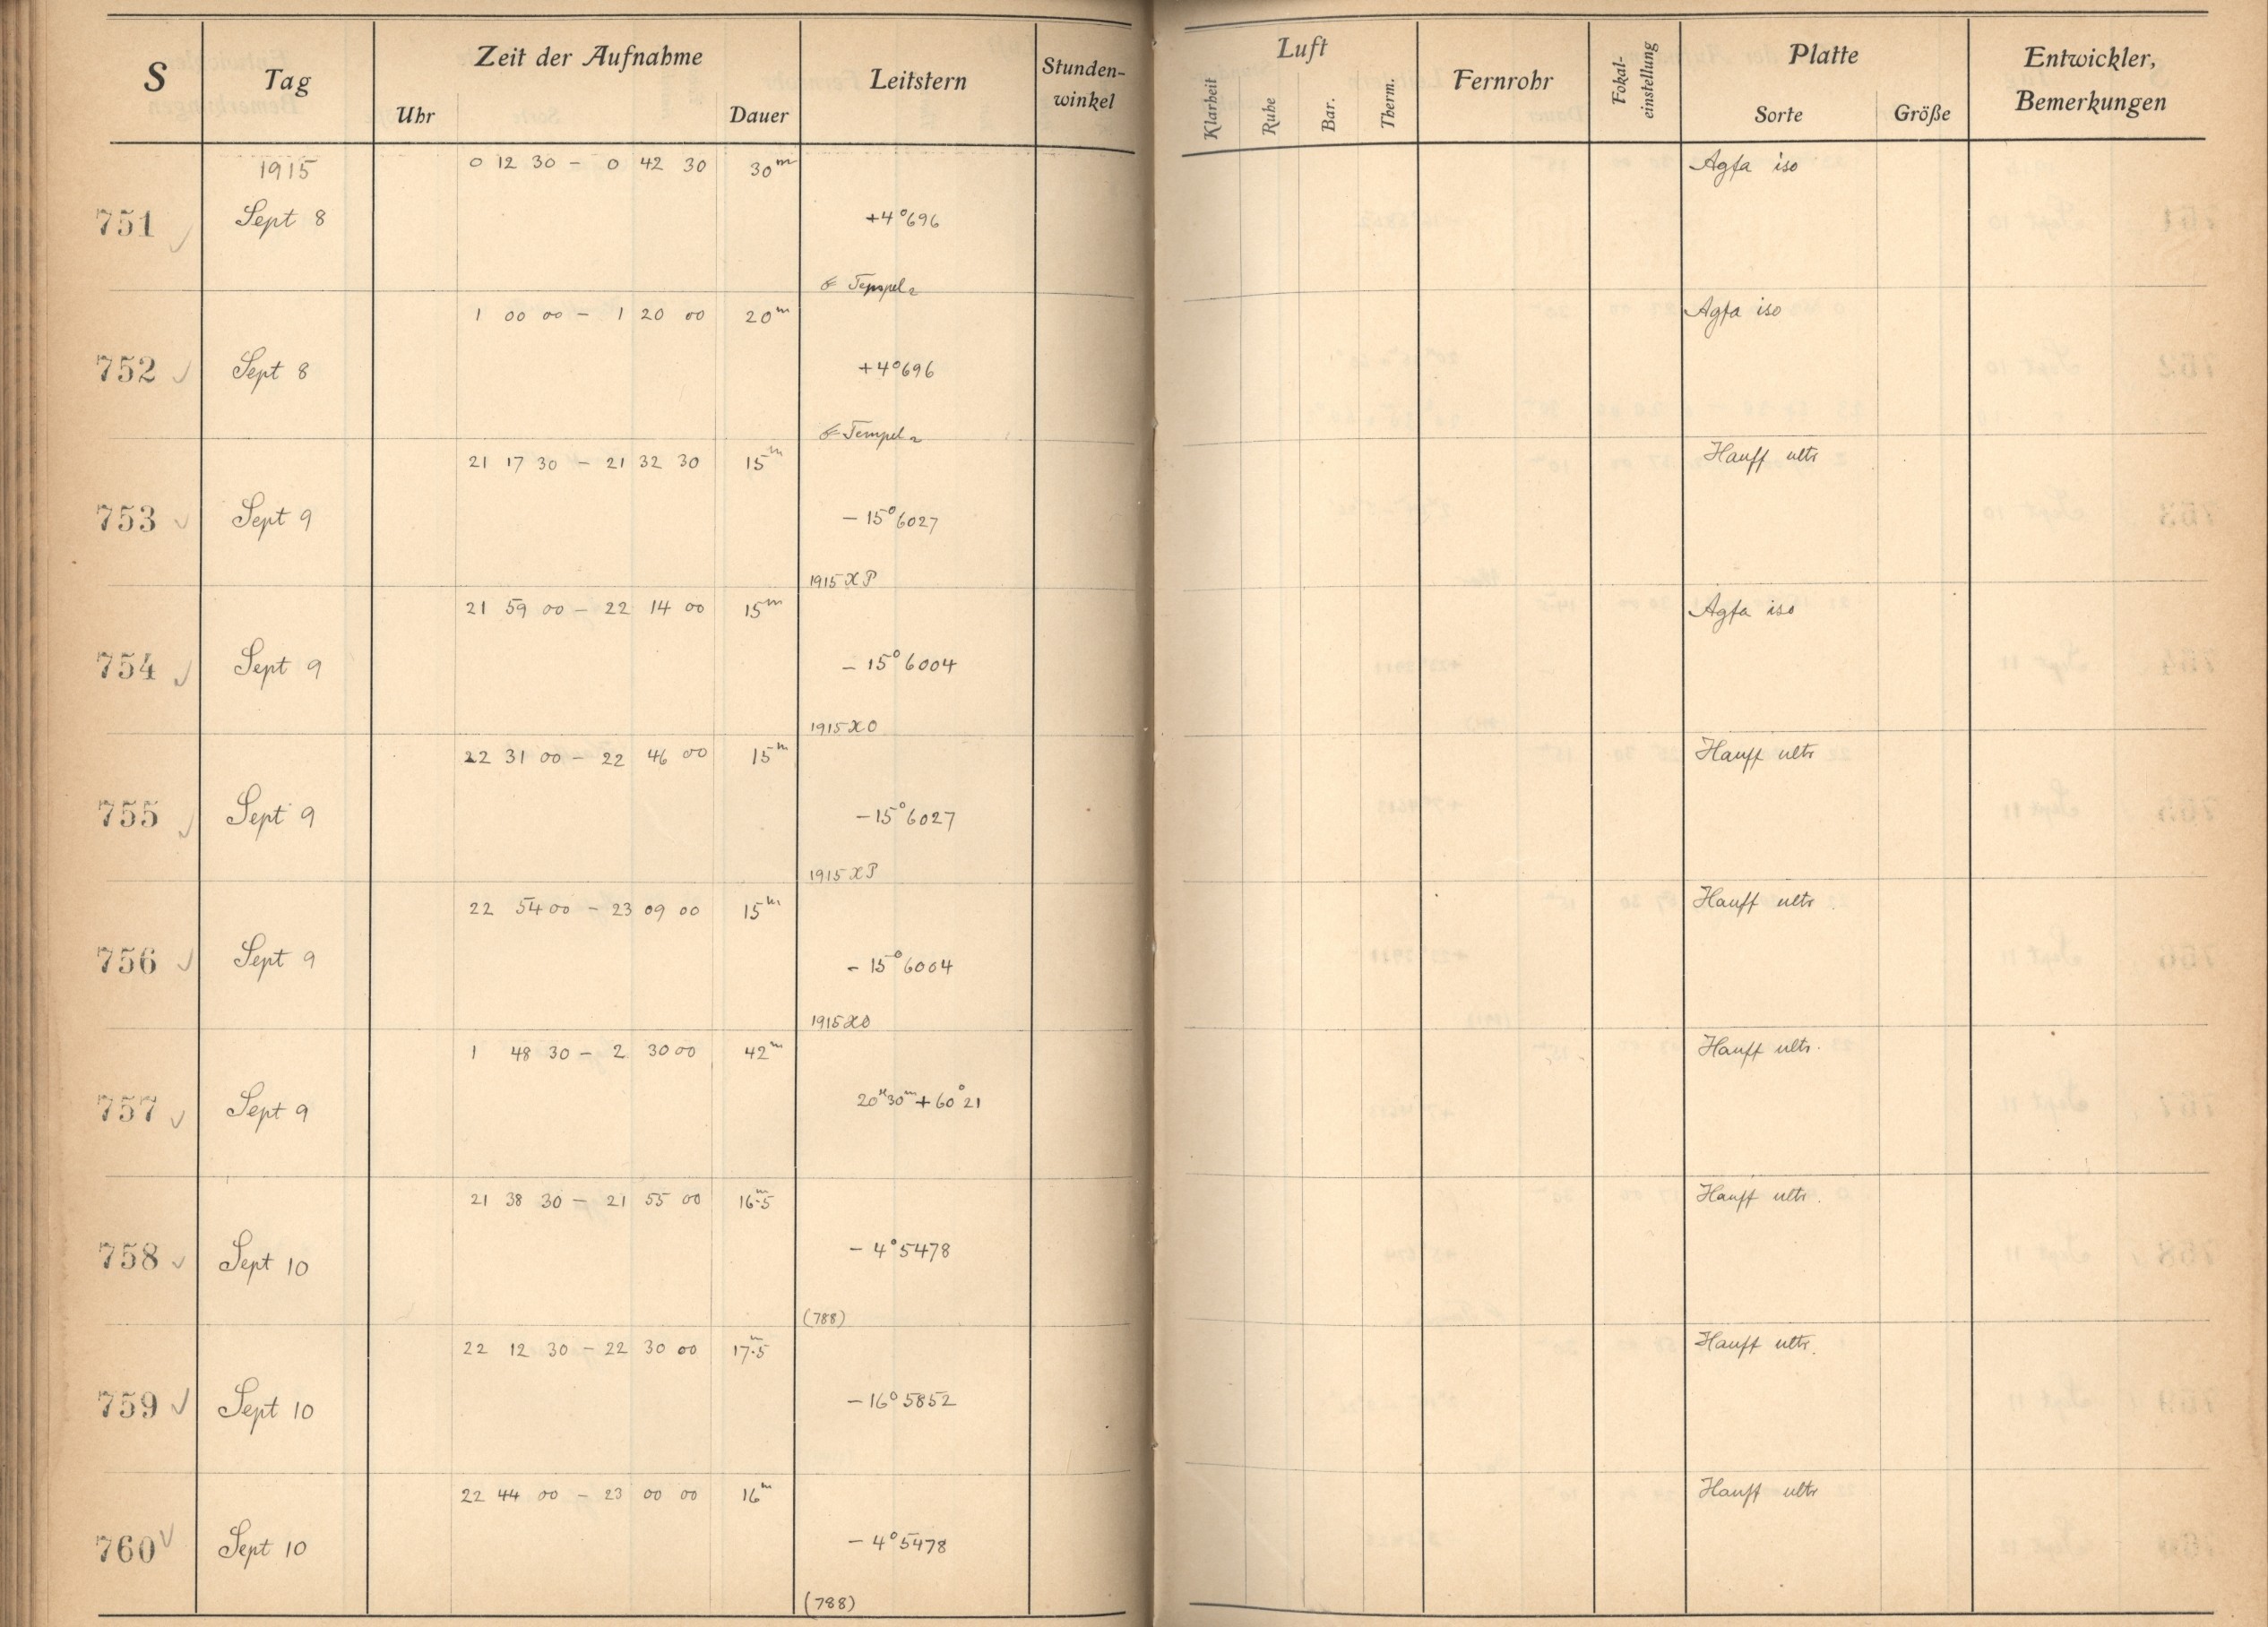 S Tag Zeit der Aufnahme Leitstern Stunden-winkel Luft Fernrohr Fokal-einstellung Platte Entwickler, Bemerkungen
Uhr Dauer Klarheit Ruhe Bar. Therm. Sorte Größe
1915 0 12 30 – 0 42 30 30m Agfa iso
751 Sept 8 +4°696
Tempel2
1 00 00 – 1 20 00 20m Agfa iso
752 Sept 8 +4°696
Tempel2
21 17 30 – 21 32 30 15m Hauff ultr
753 Sept 9 – 15°6027
1915 XP
21 59 00 – 22 14 00 15m Agfa iso
754 Sept 9 – 15°6004
1915 XO
22 31 00 – 22 46 00 15m Hauff ultr
755 Sept 9 – 15°6027
1915 XP
22 54 00 – 23 09 00 15m Hauff ultr.
756 Sept 9 – 15°6004
1915 XO
1 48 30 – 2 30 00 42m Hauff ultr.
757 Sept 9 20h30m+60°21
21 38 30 – 21 55 00 16m.5 Hauff ultr.
758 Sept 10 – 4°5478
(788)
22 12 30 – 22 30 00 17m.5 Hauff ultr.
759 Sept 10 – 16°5852
22 44 00 – 23 00 00 16m Hauff ultr
760 Sept 10 – 4°5478
(788)